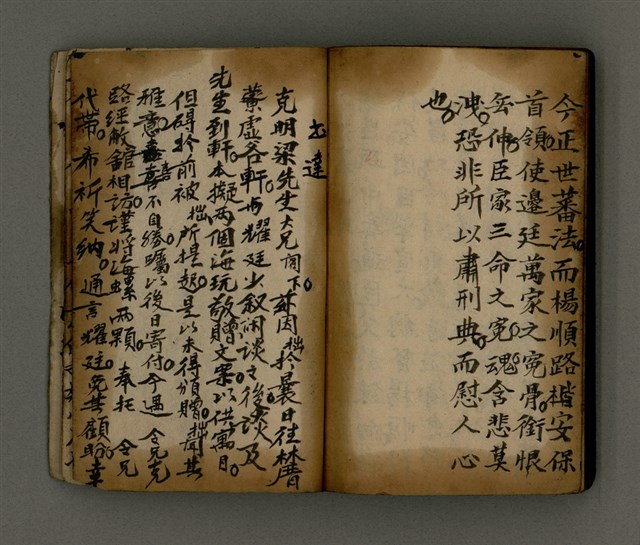 今正世蕃法而楊順路楷安保
首領使邊廷萬家之冤骨銜恨
吞伸臣家三命之冤魂含悲莫
洩恐非所以肅刑典而慰人心
也
書達
克明梁先生大兄閣下茲因拙於曩日往林厝
蕢虛谷軒與耀廷少叙闲談之後談及
先生到軒本擬兩個海玩敬贈文案以供寓目
但碍於前被拙所提起是以未得頒贈拙聞其
雅意喜不自勝囑以後日寄付今遇令兄克
路經敝館相訪謹將海螺兩顆奉托令兄
代帶希祈笑納通言耀廷免其顧盼幸